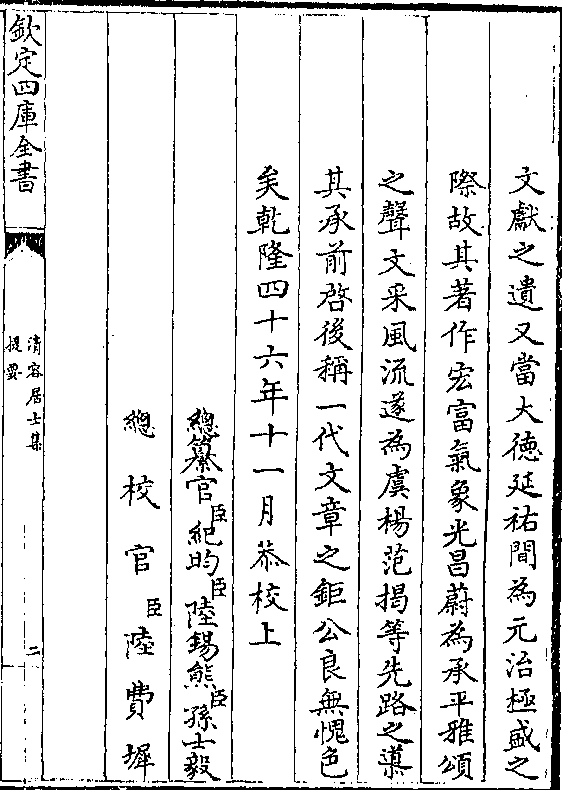 文獻之遺又當大德延祐間為元治極盛之
際故其著作宏富氣象光昌蔚為承平雅頌
之聲文采風流遂為虞楊范揭等先路之導
其承前啓後稱一代文章之鉅公良無愧色
矣乾隆四十六年十一月恭校上
總纂官臣紀昀臣陸錫熊臣孫士毅
總校官臣陸費墀
欽定四庫全書
清容居士集
提要
二